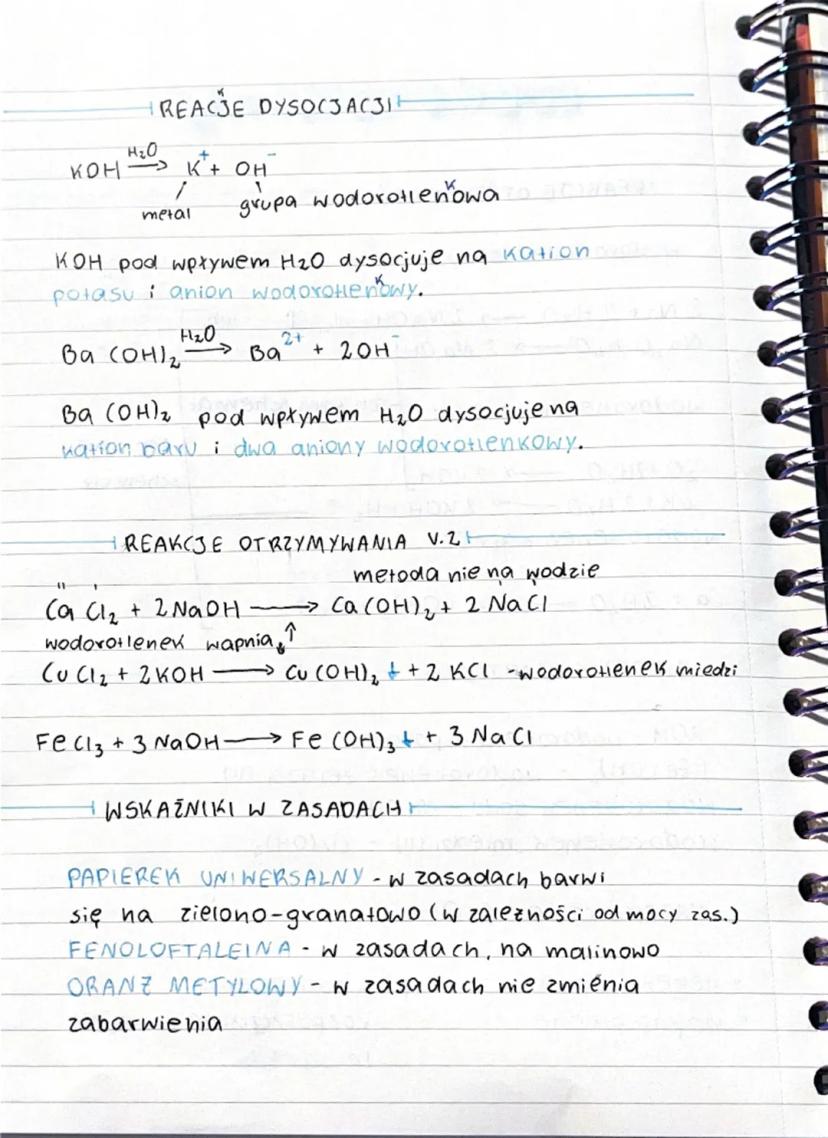 REAKCJE DYSOCJACJI
KOH H₂O → K⁺ + OH⁻
metal grupa wodorotlenkowa
KOH pod wpływem H₂O dysocjuje na kation
potasu i anion wodorotlenkowy.
Ba(OH)₂ H₂O → Ba²⁺ + 2OH⁻
Ba(OH)₂ pod wpływem H₂O dysocjuje na
kation baru i dwa aniony wodorotlenkowy.
REAKCJE OTRZYMYWANIA V.2
metoda nie na wodzie
CaCl₂ + 2NaOH → Ca(OH)₂ + 2NaCl
wodorotlenek wapnia ↑
CuCl₂ + 2KOH → Cu(OH)₂ ↓ + 2KCl - wodorotlenek miedzi
FeCl₃ + 3NaOH → Fe(OH)₃ ↓ + 3NaCl
WSKAŹNIKI W ZASADACH
PAPIEREK UNIWERSALNY - w zasadach barwi
się na zielono-granatowo (w zależności od mocy zas.)
FENOLOFTALEINA - w zasadach, na malinowo
ORANŻ METYLOWY - w zasadach nie zmienia
zabarwienia